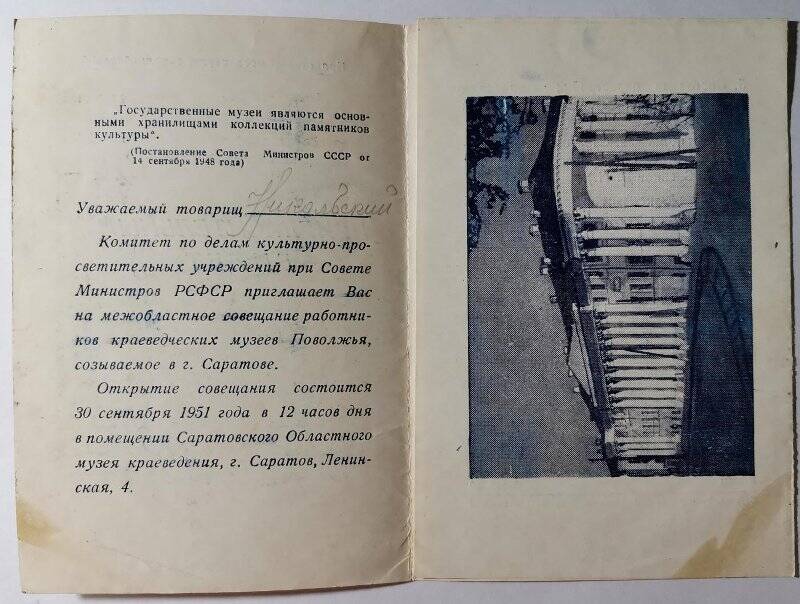 „Государственные музеи являются основ-
ными хранилищами коллекций памятников
культуры“.
(Постановление Совета Министров СССР от
14 сентября 1948 года)
Уважаемый товарищ
Комитет по делам культурно-про-
светительных учреждений при Совете
Министров РСФСР приглашает Вас
на межобластное совещание работни-
ков краеведческих музеев Поволжья,
созываемое в г. Саратове.
Открытие совещания состоится
30 сентября 1951 года в 12 часов дня
в помещении Саратовского Областного
музея краеведения, г. Саратов, Ленин-
ская, 4.